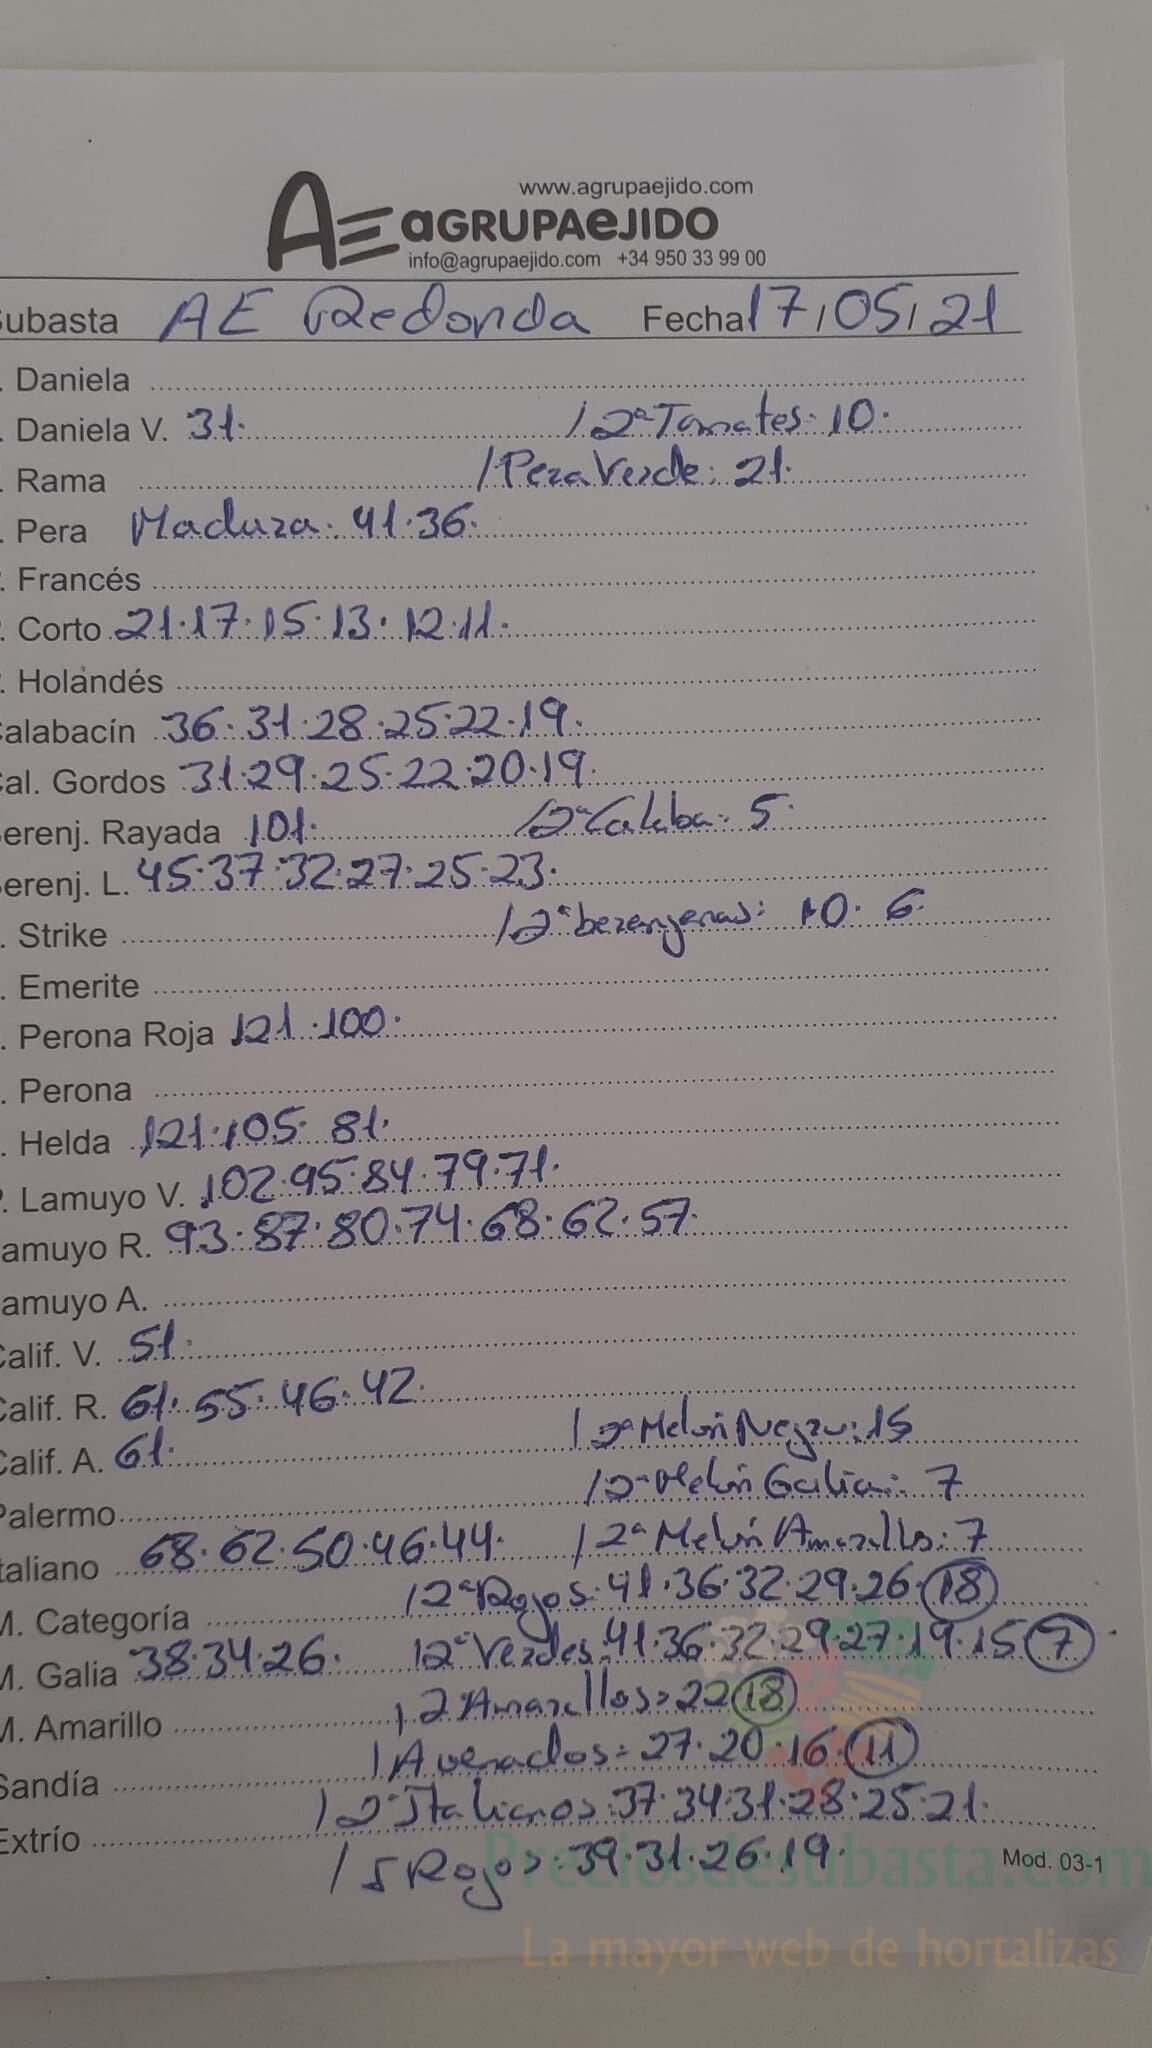 www.agrupaejido.com
AE aGRUPAeJIDO
info@agrupaejido.com +34 950 33 99 00
Subasta AE Redonda Fecha 17/05/21
. Daniela
. Daniela V. 31. / 2ª Tomates: 10.
. Rama / Pera Verde: 21.
. Pera Madura: 41.36.
. Francés
. Corto 21.17.15.13.12.11.
. Holandés
Calabacín 36.31.28.25.22.19.
Cal. Gordos 31.29.25.22.20.19.
Berenj. Rayada 101. / 2ª Calaba: 5.
Berenj. L. 45.37.32.27.25.23.
. Strike / 2ª berenjenas: 10. 6.
. Emerite
. Perona Roja 121.100.
. Perona
. Helda 121.105. 81.
P. Lamuyo V. 102.95.84.79.71.
Lamuyo R. 93.87.80.74.68.62.57.
Lamuyo A.
Calif. V. 51.
Calif. R. 61.55.46.42.
Calif. A. 61. / 2ª Melón Negro: 15
Palermo / 2ª Melón Galia: 7
Italiano 68.62.50.46.44. / 2ª Melón Amarillo: 7
M. Categoría / 2ª Rojos: 41.36.32.29.26.18
M. Galia 38.34.26. / 2ª Verdes: 41.36.32.29.27.19.15 7.
M. Amarillo / 2ª Amarillos: 22 18
Sandía / Averados: 27.20.16.11
Extrío / 2ª Italianos: 37.34.31.28.25.21.
/ 5 Rojos: 39.31.26.19. Mod. 03-1
Preciosdesubasta.com
La mayor web de hortalizas